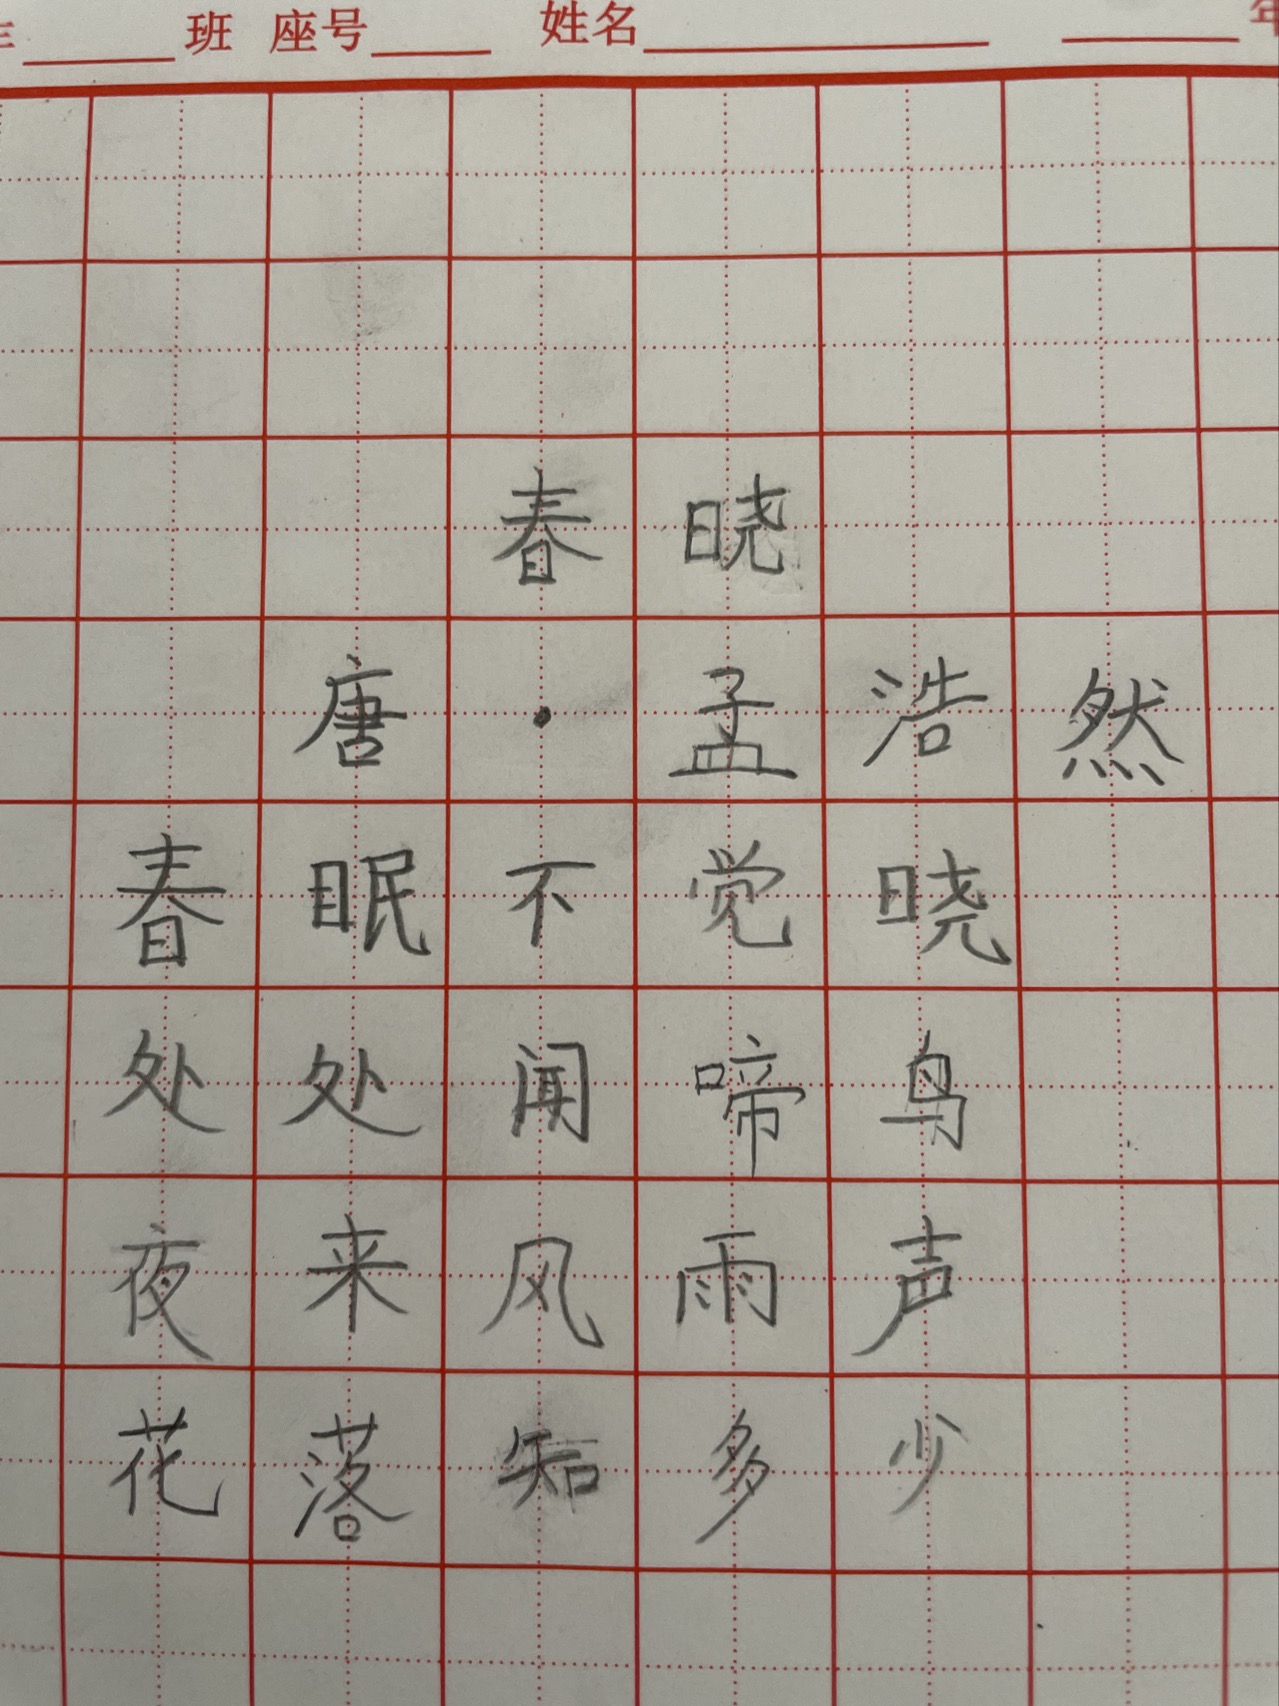 班 座号 姓名 年
春晓
唐·孟浩然
春眠不觉晓
处处闻啼鸟
夜来风雨声
花落知多少